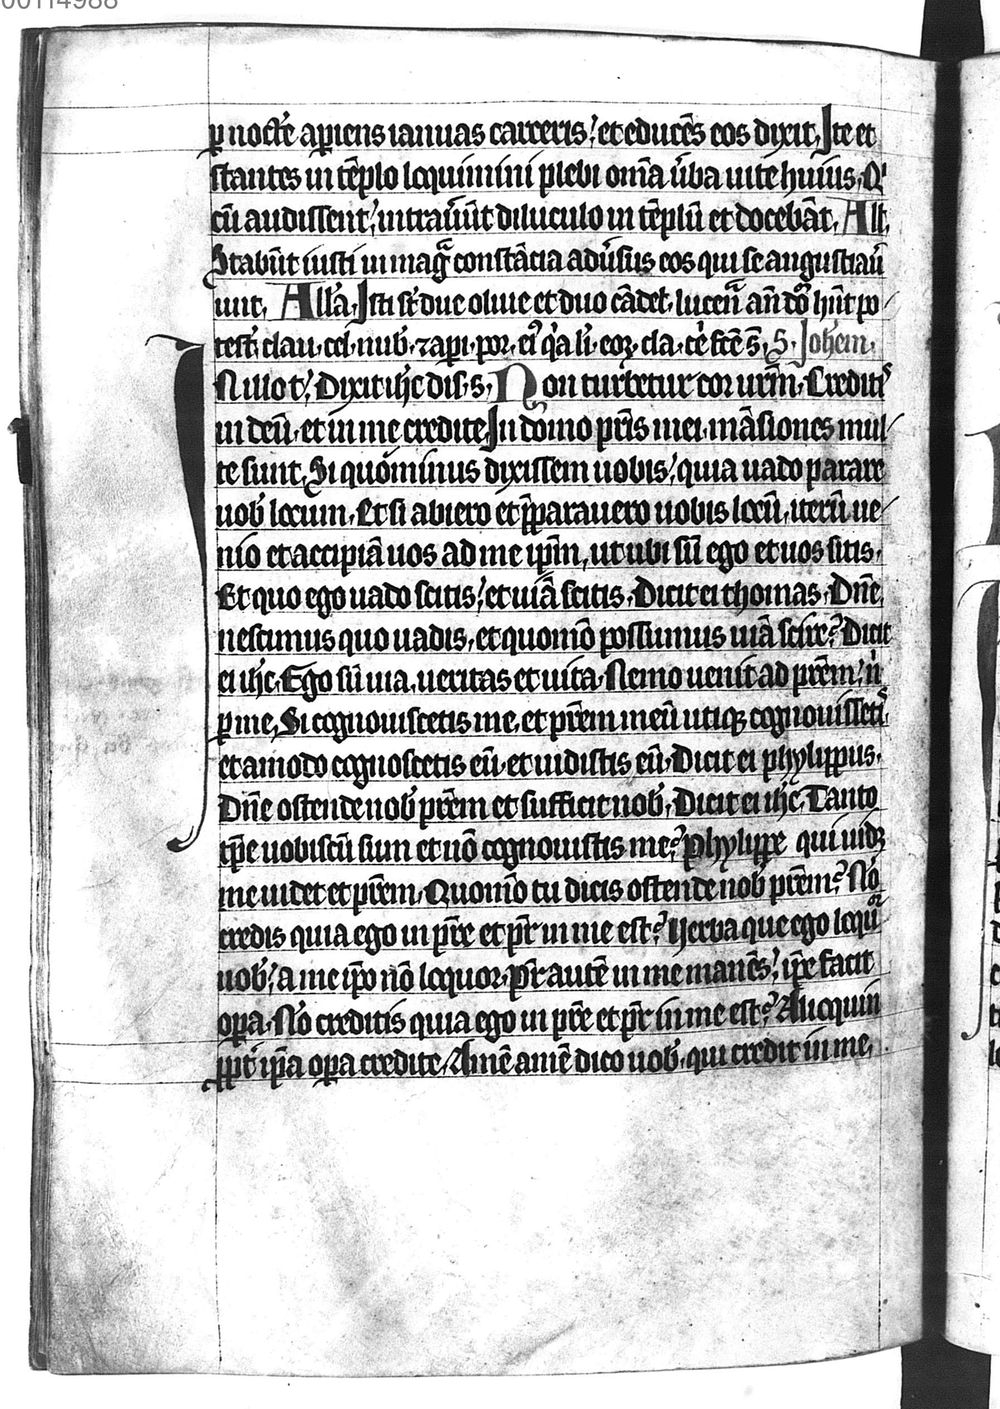 00114988
p̲ noctē apiens ianuas carceris ⁊ et educēs eos dixit. Ite et
stantes in tēplo loquimini plebi om̄a ūba uite huius. Qͥ
cū audissent ⁊ intrauūt diluculo in tēplū et docebāt. All.
Stabūt iusti in maḡ constācia adūsus eos qui se angustiaū
unt. All'a. Isti st̄ due oliue et duo cādel. lucen̄ an̄ dō hn̄t po
test̄ clau. cel. nub. ⁊ aꝑi. por. eꝰ qͥa li. eoꝝ. cla. cē fcē s̄. S. Johem.
IN illo t̄. Dixit ih̄c dis. s. Non turbetur cor ur̄m. Creditꝭ
in deū. et in me credite. In domo pr̄is mei. māsiones mul
te sunt. Si quominus dixissem uobis ⁊ quia uado parare
uob' locum. Et si abiero et p̄parauero uobis locū. iterū ue
nio et accipiā uos ad me ip̄m, ut ubi sū ego et uos sitis.
Et quo ego uado scitis ⁊ et uiā scitis. Dicit ei thomas. Dn̄e
nescimus quo uadis. et quomō possumus uiā scire? Dicit
ei ih̄c. Ego sū uia. ueritas et uita. Nemo uenit ad pr̄em ⁊ nͥ
ꝑ me. Si cognouiscetis me. et pr̄em meū utiqꝫ cognouissetꝭ
et amodo cognoscetis eū. et uidistis eū. Dicit ei phylippus.
Dn̄e ostende nob' pr̄em et sufficit nob'. Dicit ei ih̄c. Tanto
tp̄e uobiscū sum et nō cognouistis me? Phylippe qui uidꝫ
me uidet et pr̄em. Quomō tu dicis ostende nob' pr̄em? Nō
credis quia ego in pr̄e et pr̄ in me est? Uerba que ego loqͦr
uob' ⁊ a me ip̄o nō loquor. Pr̄ autē in me manēs ⁊ ip̄e facit
oꝑa. Nō creditis quia ego in pr̄e et pr̄ in me est? Alioquin
ꝓpt̄ ip̄a oꝑa credite. Amē amē dico uob'. qui credit in me.